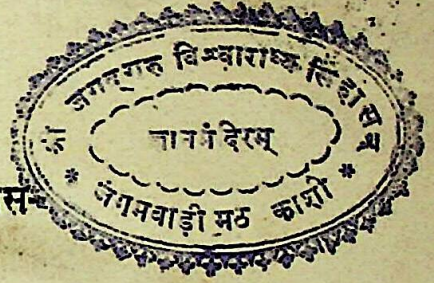 श्री जगद्गुरु विश्वाराध्य सिंहासन
ज्ञानमंदिरम्
* जंगमवाड़ी मठ काशी *
स